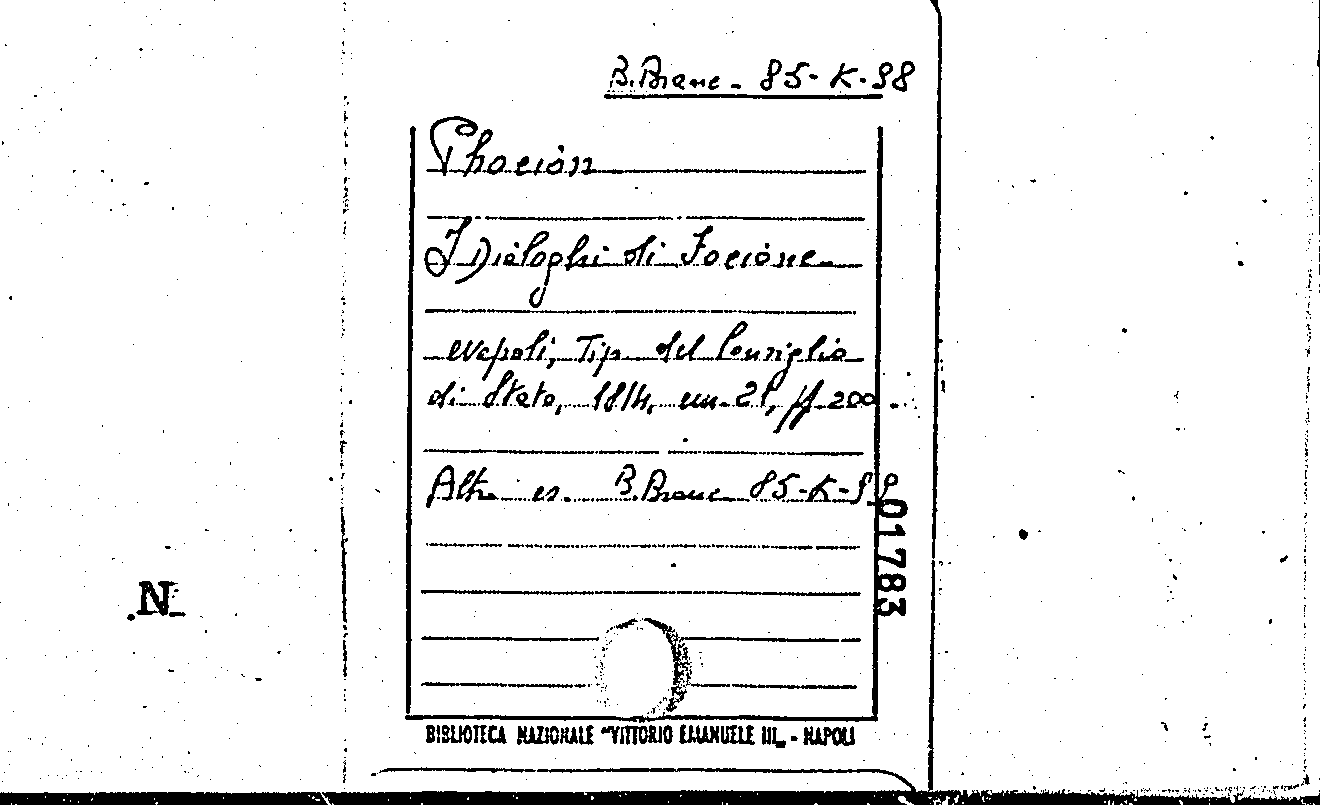 B. Branc. 85-K-98
Phocion
I Dialoghi di Focione
Napoli, Tip. del Consiglio
di Stato, 1814, cm. 21, pp. 200.
Altro es. B. Branc. 85-K-99
01783
N
BIBLIOTECA NAZIONALE "VITTORIO EMANUELE III„ - NAPOLI